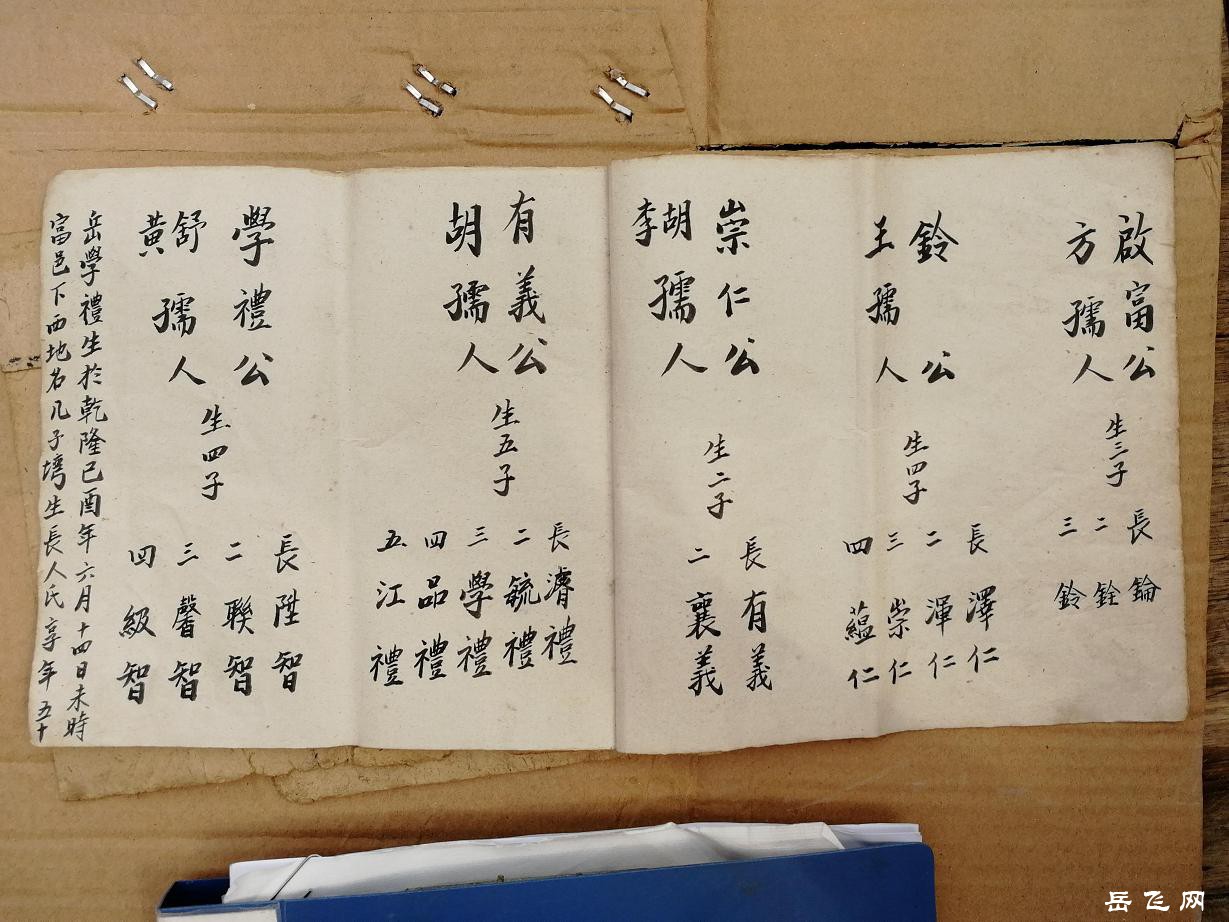 啟富公
方孺人
生三子
長 錀
二 銓
三 鈴
鈴公
王孺人
生四子
長 澤仁
二 渾仁
三 崇仁
四 蘊仁
崇仁公
胡
李
孺人
生二子
長 有義
二 襄義
有義公
胡孺人
生五子
長 濬禮
二 毓禮
三 學禮
四 品禮
五 江禮
學禮公
舒
黃
孺人
生四子
長 陞智
二 聯智
三 馨智
四 級智
岳學禮生於乾隆己酉年六月十四日未時
富邑下西地名几子塆生長人氏享年五十
岳飞网